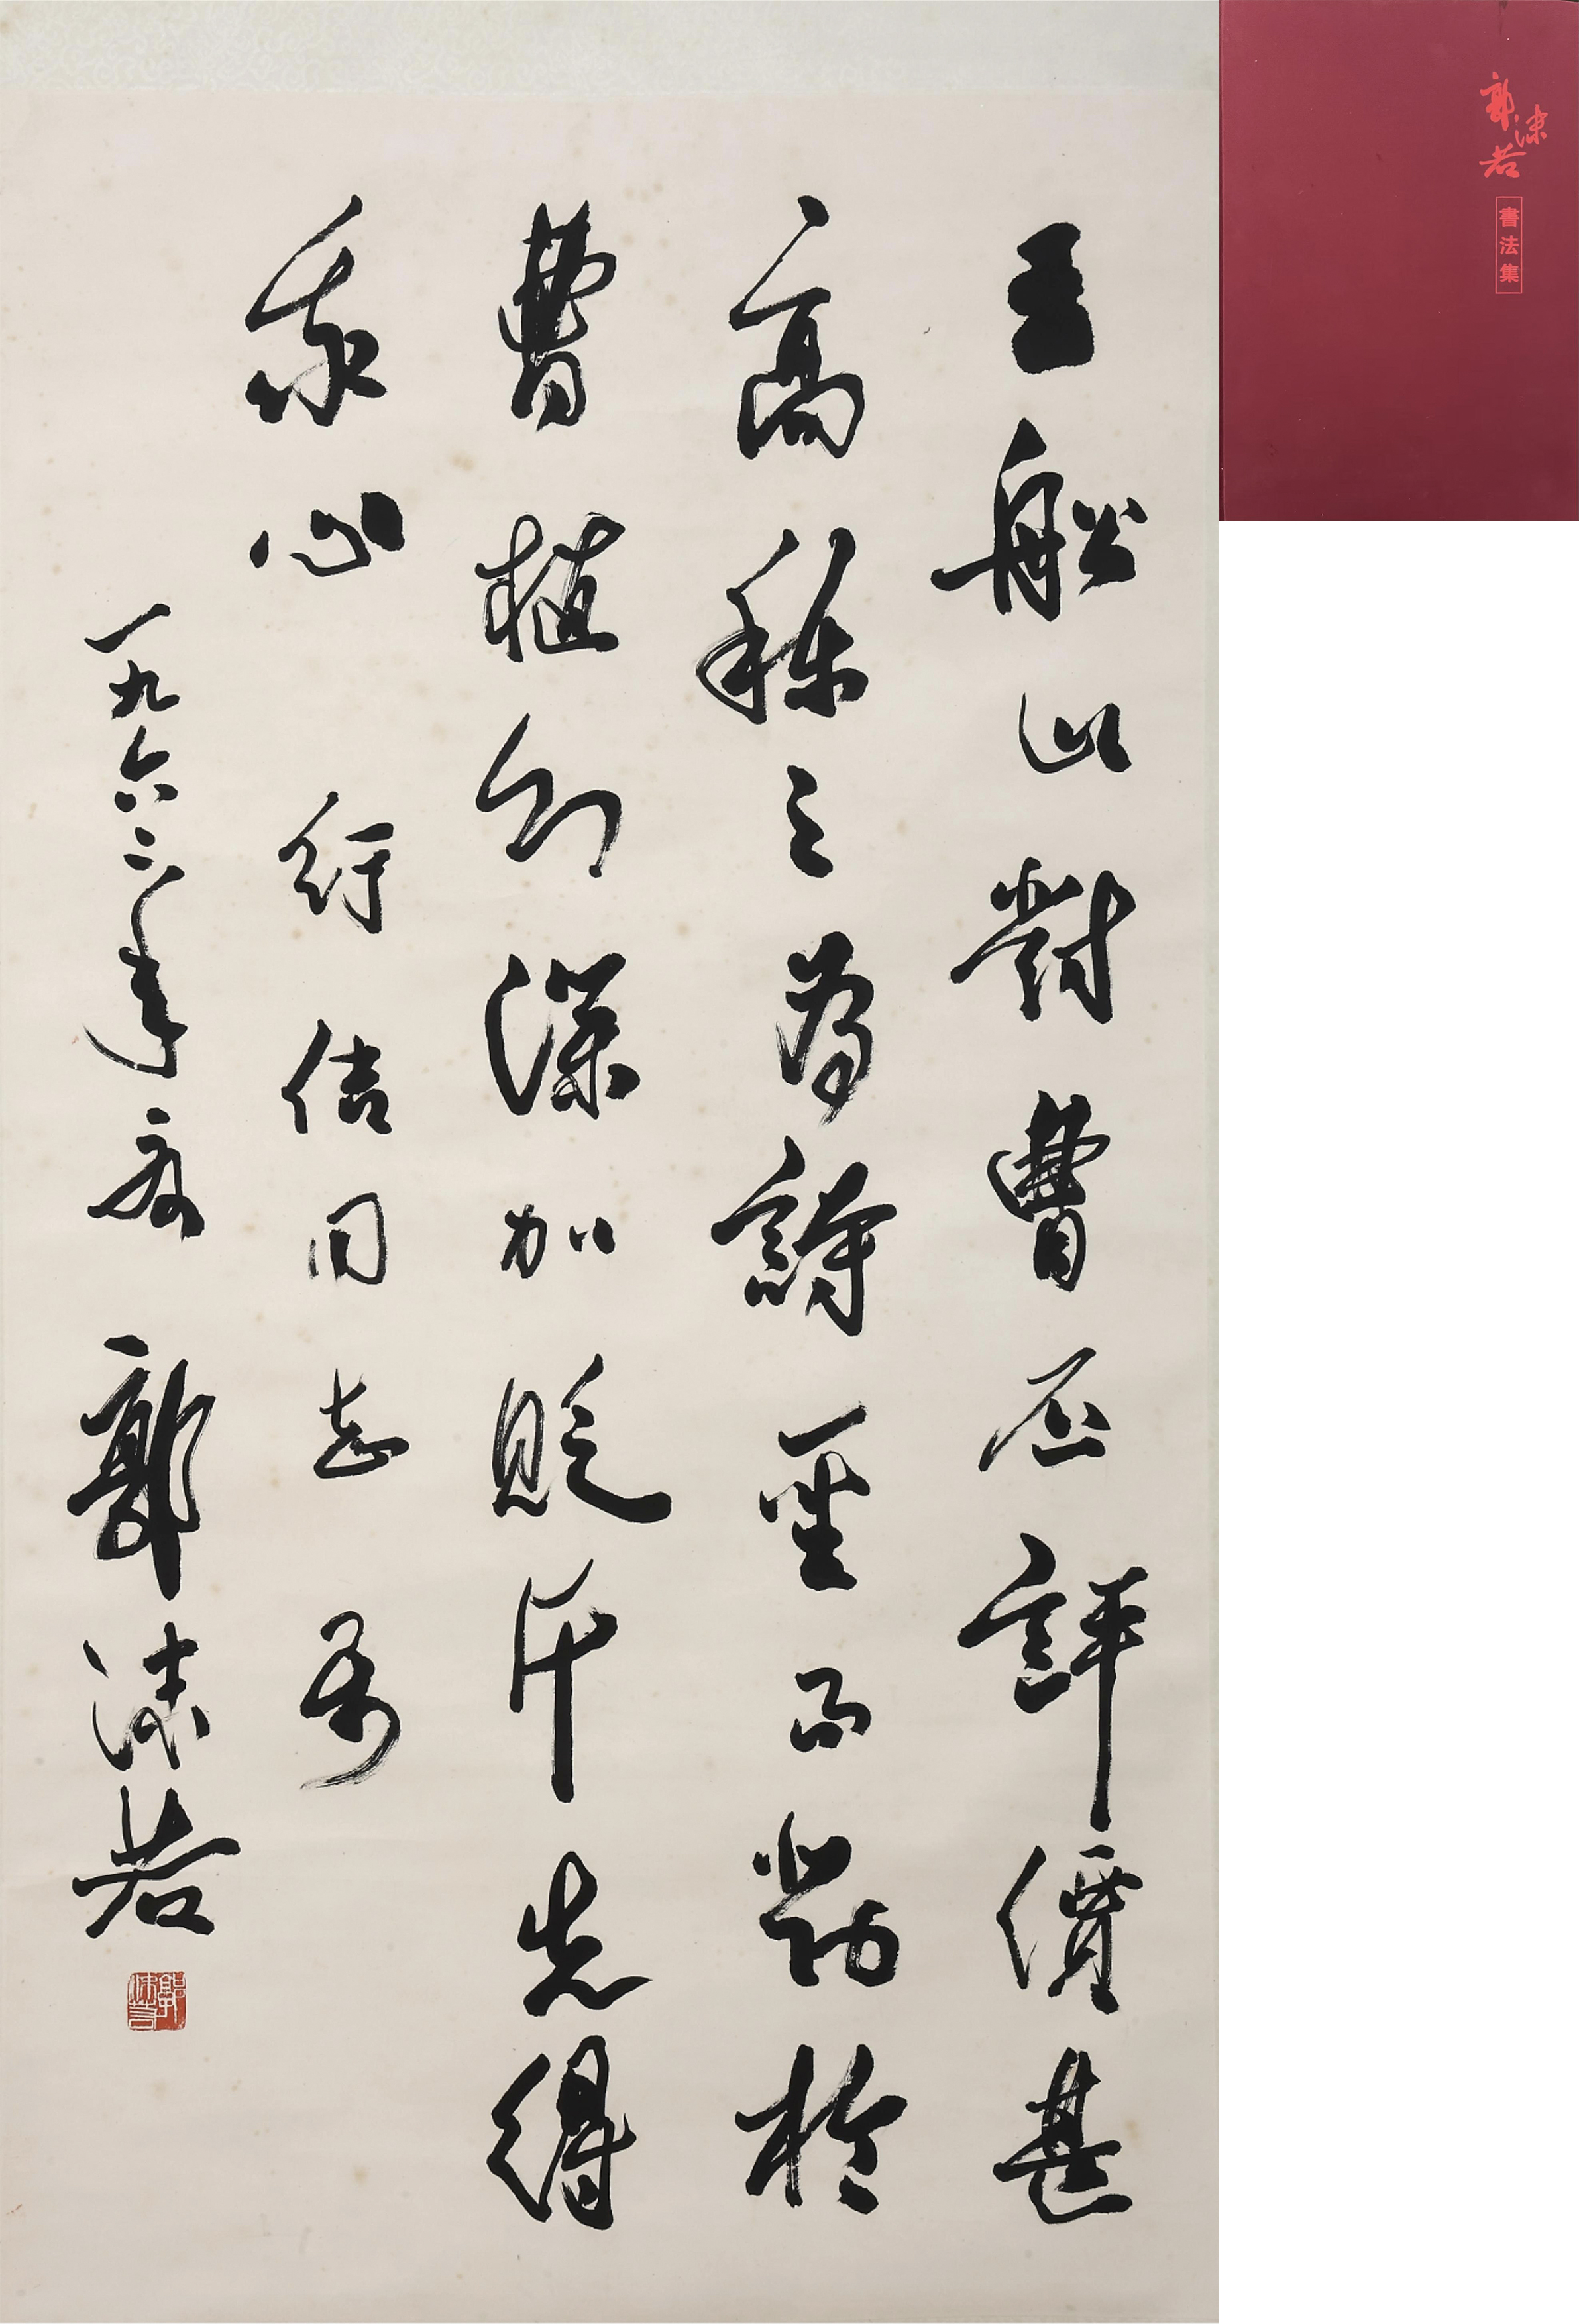 王船山對曹丕評價甚
高稱之為詩聖而對於
曹植則深加貶斥先得
我心 紆佶同志屬
一九六二年夏 郭沫若
郭沫若
郭沫若
書法集